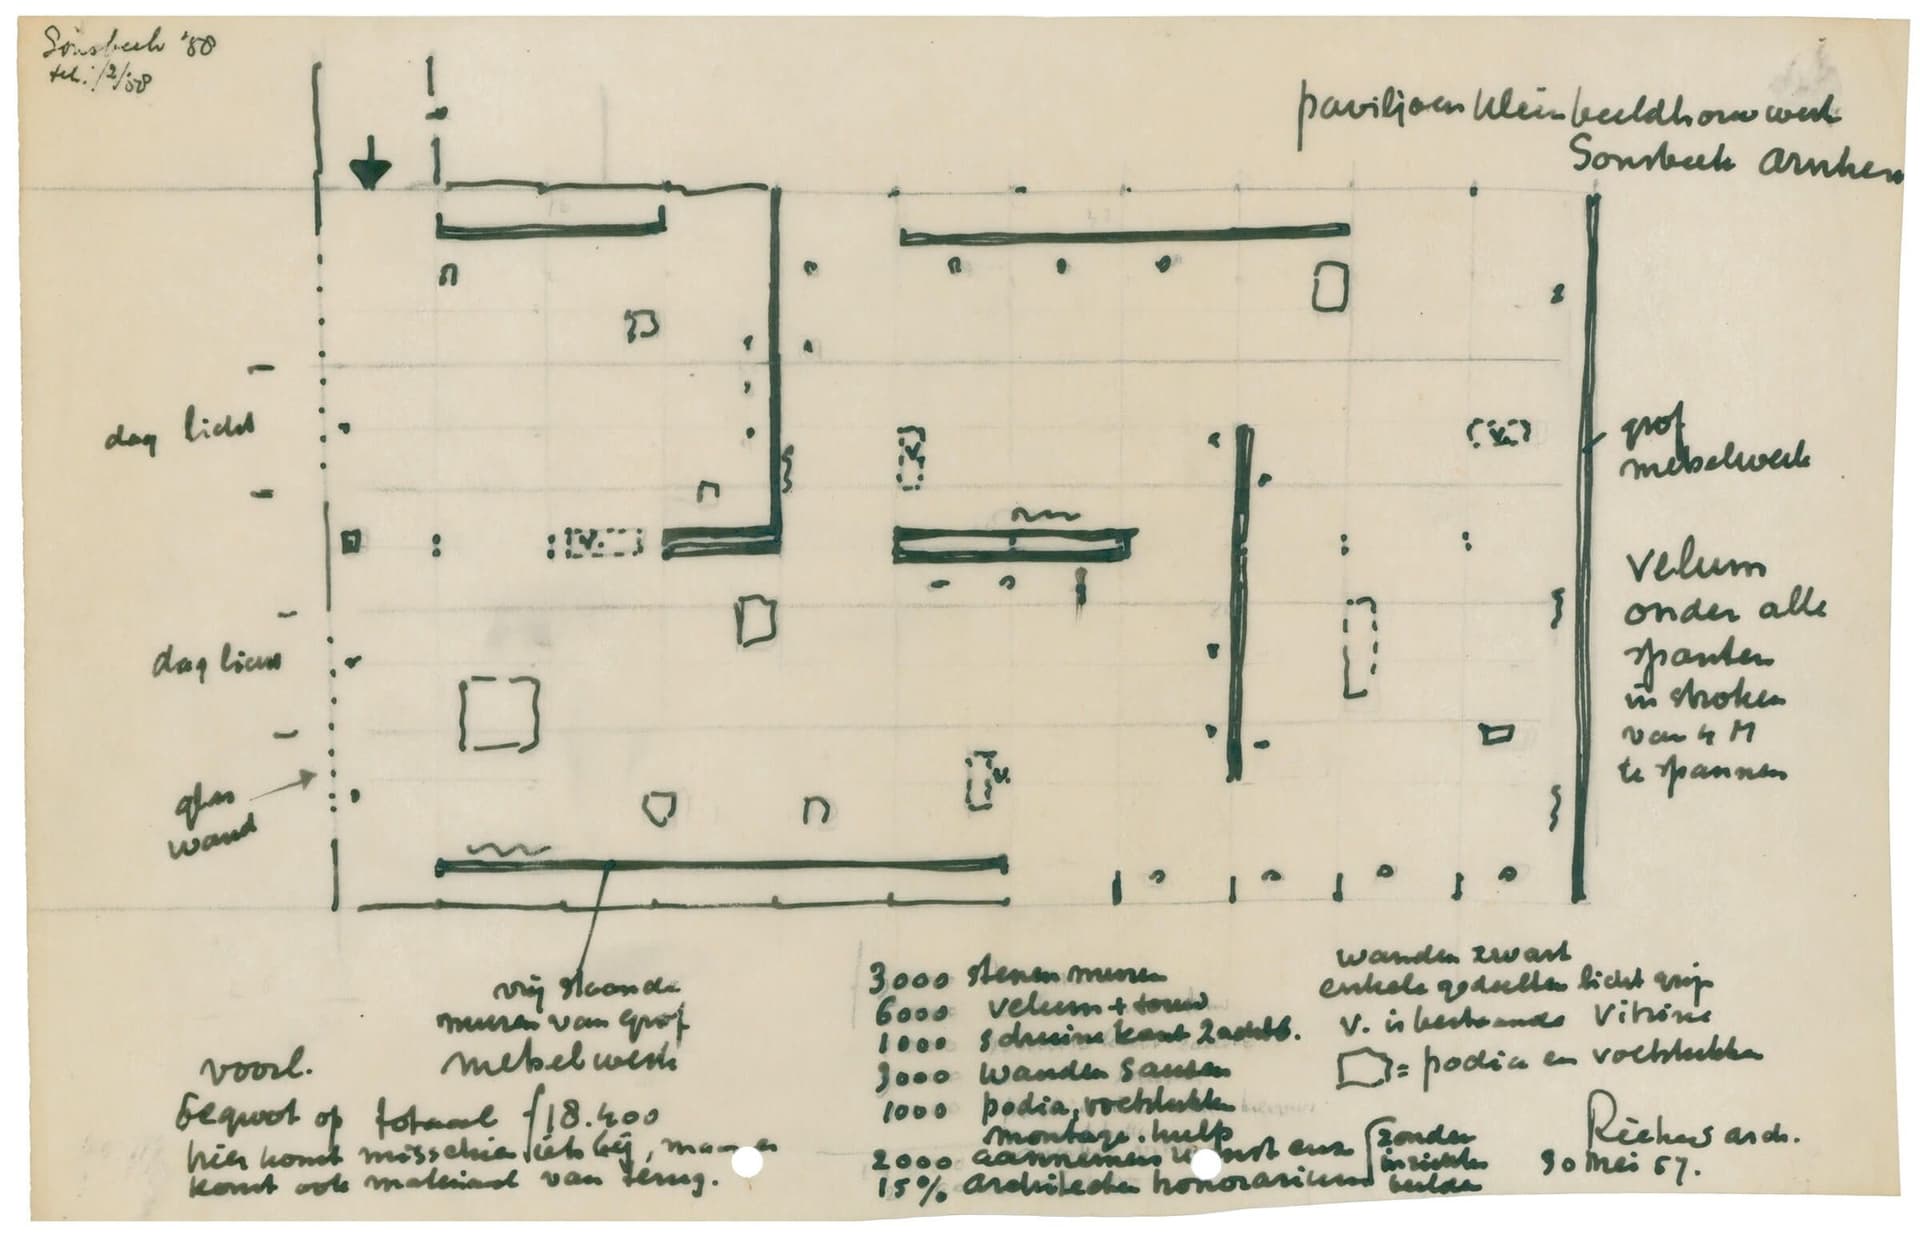 Sonsbeek '58
paviljoen klein beeldhouwwerk
Sonsbeek Arnhem
dag licht
dag licht
glas
wand
grof
metselwerk
velum
onder alle
spanten
in stroken
van 4 M
te spannen
V.
V.
V.
V.
vrij staande
muren van grof
metselwerk
voorl.
begroot op totaal f 18.400
hier komt misschien iets bij, maar er
komt ook materiaal van terug.
3000 stenen muren
6000 velum + touw
1000 schuine kant
3000 wanden sausen
1000 podia, voetstukken
montage. hulp
2000 aannemers winst enz
15% architecten honorarium
zonder
inrichten
beelden
wanden zwart
enkele gedeelten licht grijs
V. is bestaande vitrine
= podia en voetstukken
Rietveld arch.
30 mei 57.